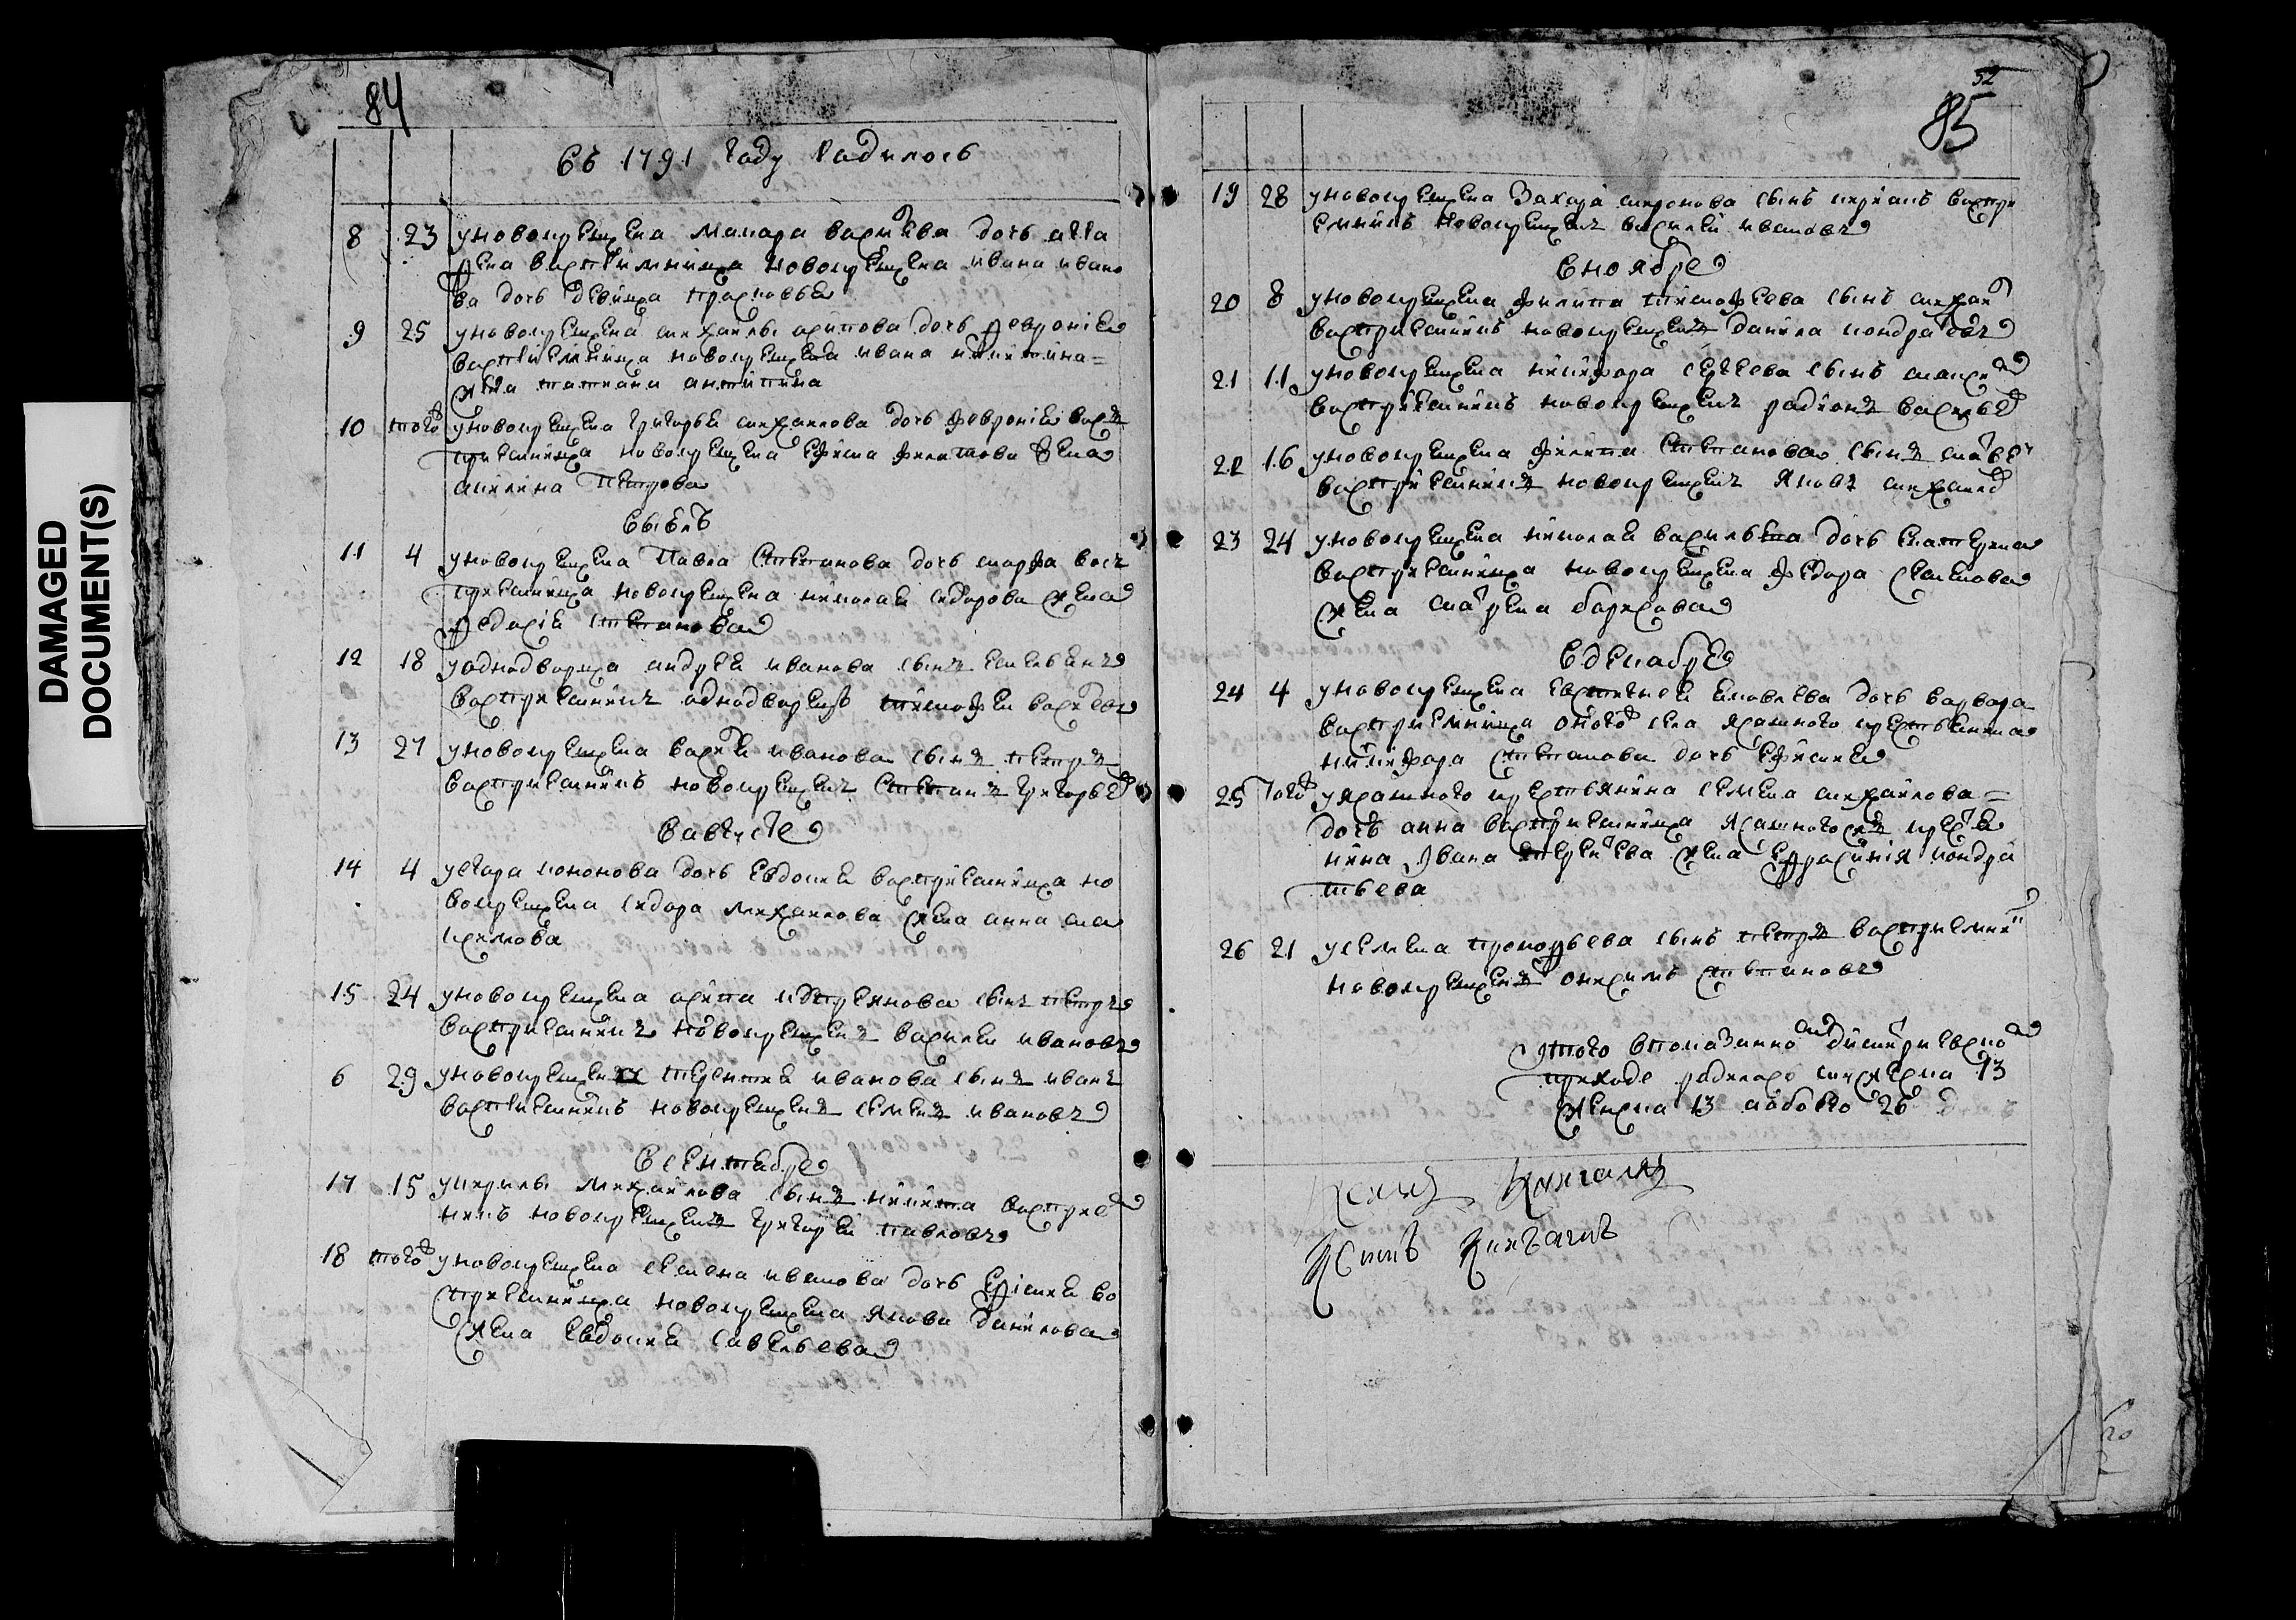 DAMAGED
DOCUMENT(S)
84
Въ 1791 году родилось
8 23 у новокрещена Макара Васильева дочь Ага
фена восприемница новокрещена Ивана Ивано
ва дочь девица Прасковья
9 25 у новокрещена михаилы осипова дочь феврония
восприемница новокрещена ивана
жена татиана антипина
10 того у новокрещена григорья михаилова дочь феврония вос
приемница новокрещена ефима филипова жена
акилина петрова
В июлѣ
11 4 у новокрещена Павла Степанова дочь марфа вос
приемница новокрещена николая сидорова жена
федосия степанова
12 18 у однодворца андрея иванова сынъ емельянъ
восприемникъ однодворецъ тимофеи васильевъ
13 27 у новокрещена василья иванова сынъ петръ
восприемникъ новокрещенъ Степанъ григорьев
В августе
14 4 у егора кононова дочь евдокия восприемница но
вокрещена сидора михаилова жена анна ма
ксимова
15 24 у новокрещена осипа сынъ петръ
восприемникъ новокрещенъ василеи ивановъ
6 29 у новокрещена терентия иванова сынъ иванъ
восприемникъ новокрещенъ семенъ ивановъ
В сентябре
17 15 у кирилы михаилова сынъ никита восприем
никъ новокрещенъ григореи павловъ
18 того у новокрещена семена иванова дочь ефимия во
сприемница новокрещена якова данилова
жена евдокия савельева
52
85
19 28 у новокрещена Захара миронова сынъ восприе
емникъ новокрещенъ василеи ивановъ
В ноябре
20 8 у новокрещена филипа тимофеева сынъ михаи
восприемникъ новокрещенъ данила кондратевъ
21 11 у новокрещена никифора сергеева сынъ максим
восприемникъ новокрещенъ радионъ василье
22 16 у новокрещена филипа Степанова сынъ матвеи
восприемникъ новокрещенъ яковъ михаило
23 24 у новокрещена николая васильева дочь екатерина
восприемница новокрещена федора семенова
жена марина борисова
В декабре
24 4 у новокрещена евстигнея яковлева дочь варвара
восприемница оного села ясашного крестьянина
никифора степанова дочь ефимия
25 того у ясашного крестьянина семена михаилова
дочь анна восприемница ясашного ж крестья
нина Ивана жена ефросиния кондра
тьева
26 21 у семена прокофьева сынъ петръ восприемник
новокрещенъ онисимъ степановъ
Итого в показанном димитриевском
приходе родилось мужеска 13
женска 13 а обоего 26